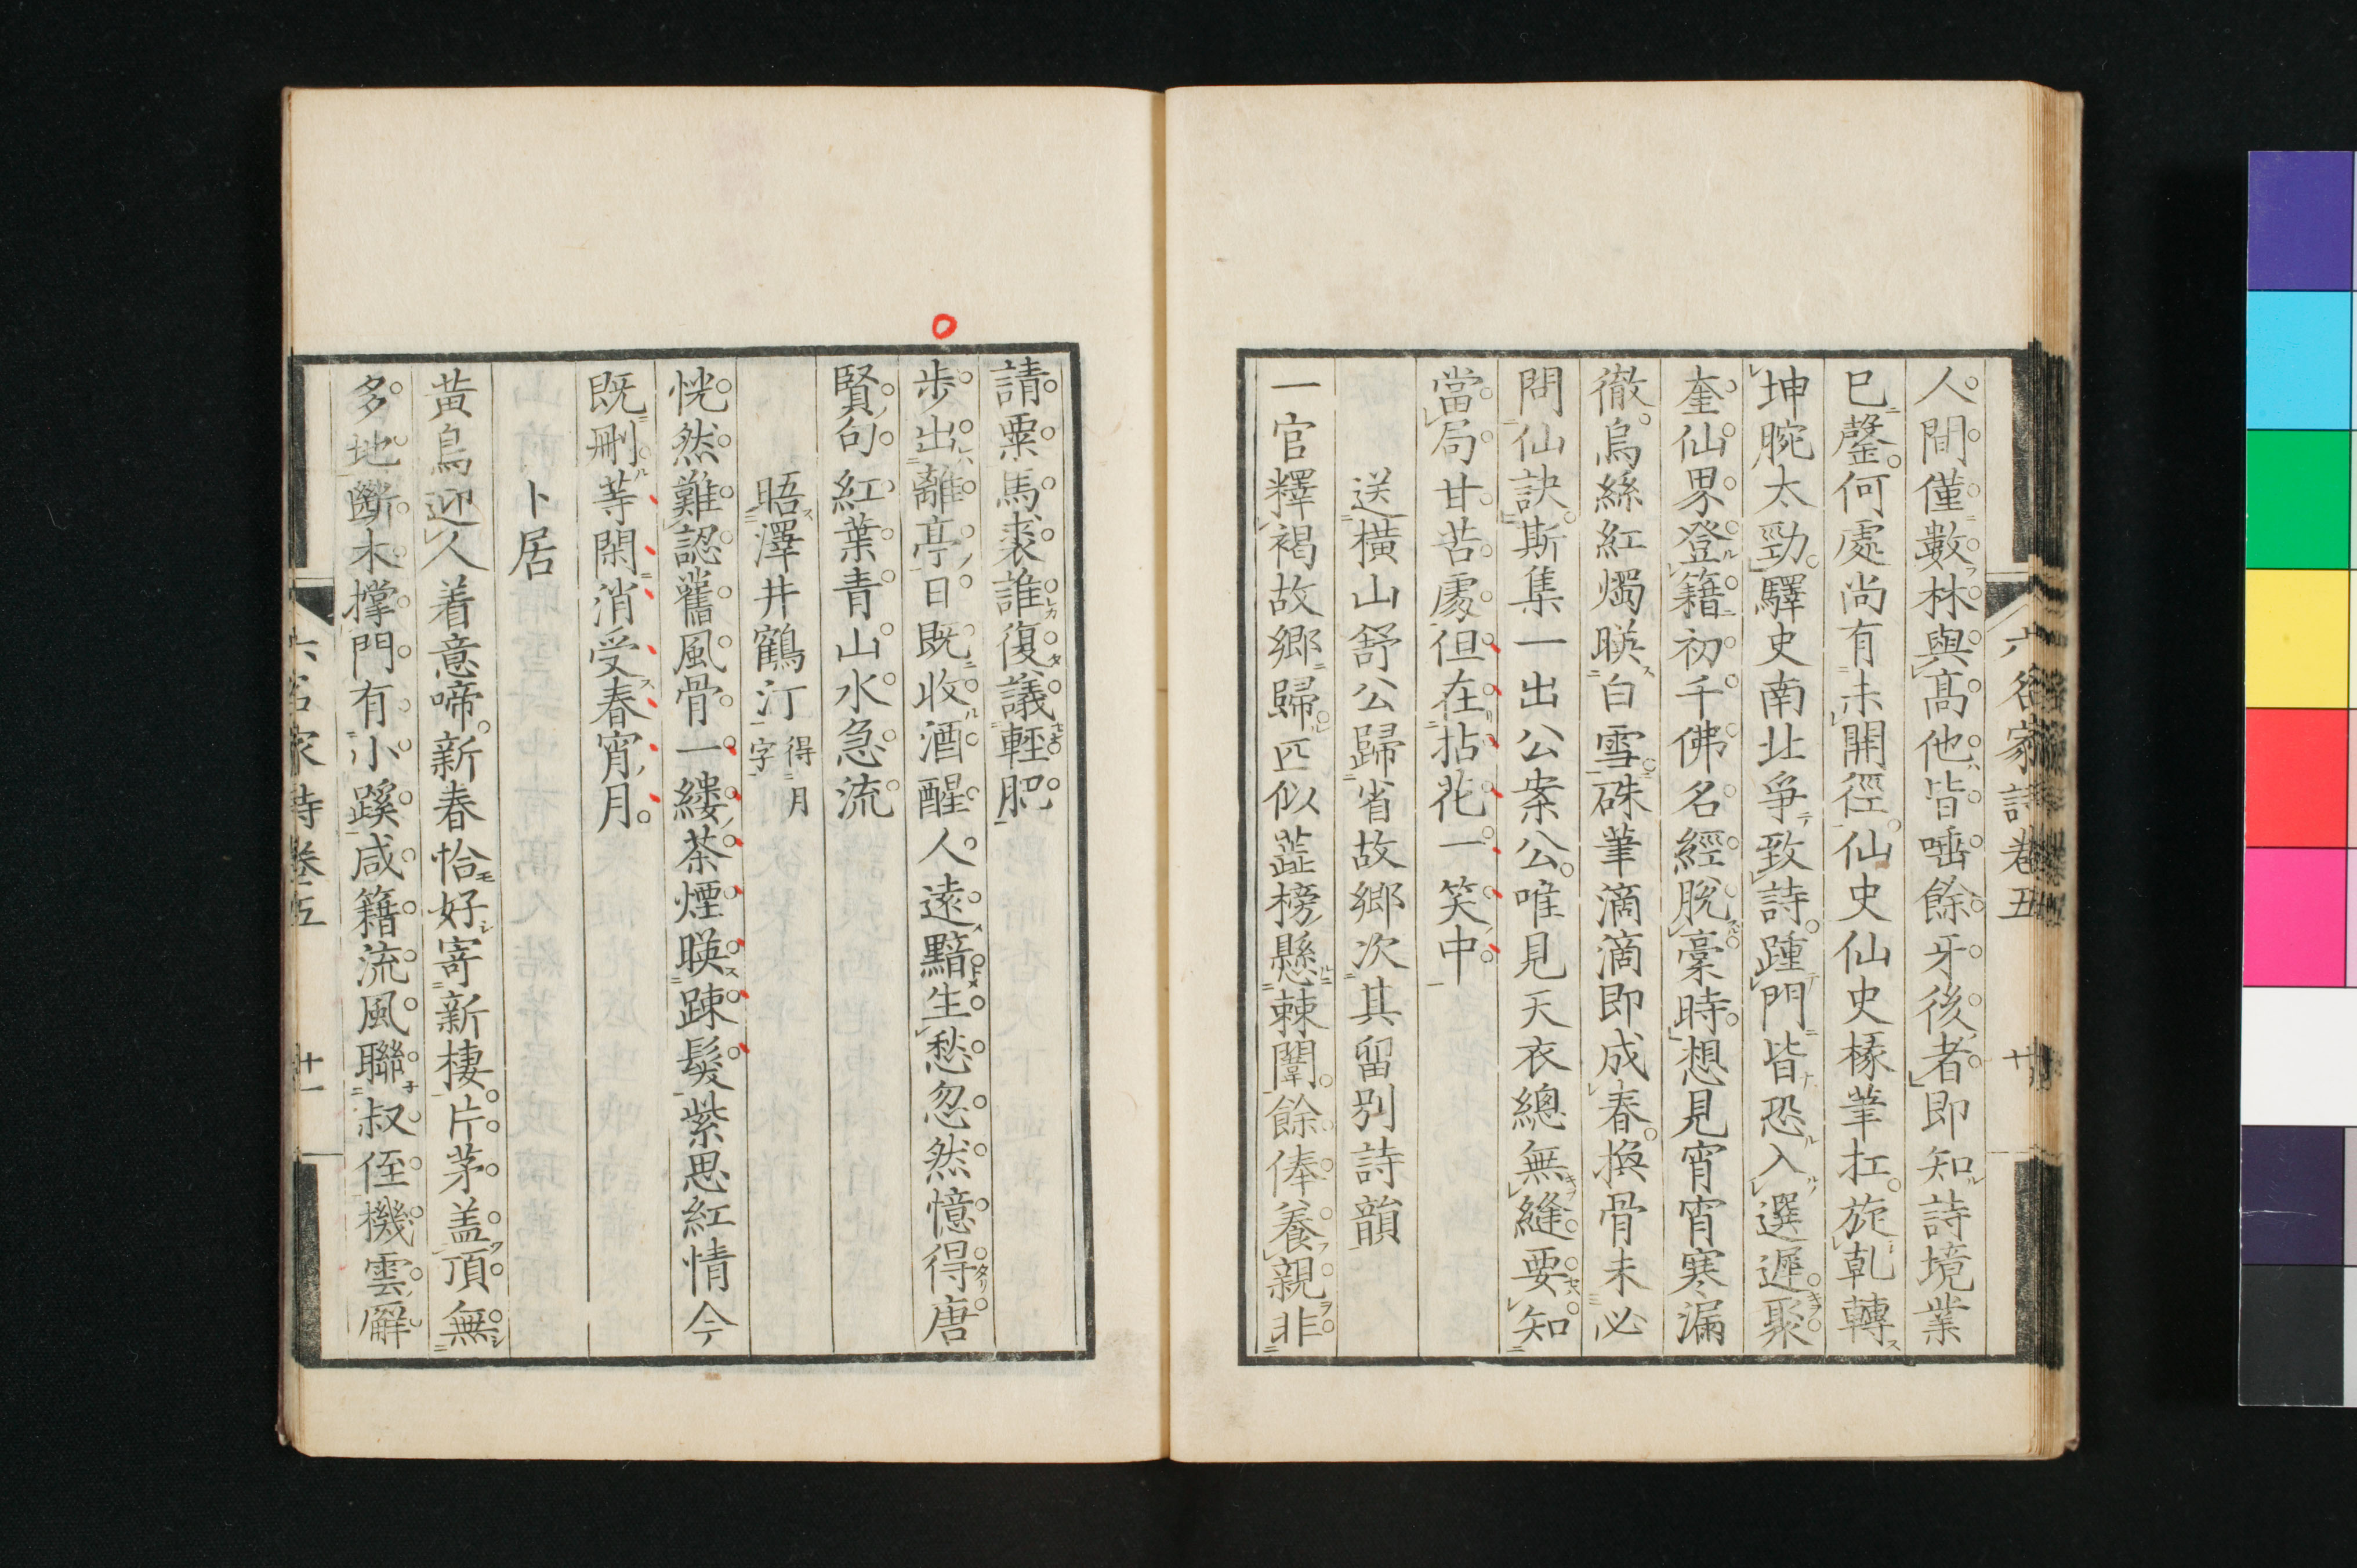 六名家詩卷五
十
人間僅數林與高他皆唾餘牙後者卽知詩境業
已罄何處尚有未開徑仙史仙史椽筆扛旋乾轉
坤腕太勁驛史南北爭致詩踵門皆恐入選遲聚
奎仙界登籍初千佛名經脫稾時想見宵宵寒漏
徹烏絲紅燭暎白雪硃筆滴滴卽成春換骨未必
問仙訣斯集一出公案公唯見天衣總無縫要知
當局甘苦處但在拈花一笑中
送橫山舒公歸省故鄉次其留別詩韻
一官釋褐故鄉歸匹似蕋榜懸棘闈餘俸養親非
請粟馬裘誰復議輕肥
步出離亭日既收酒醒人遠黯生愁忽然憶得唐
賢句紅葉青山水急流
晤澤井鶴汀得月字
恍然難認舊風骨一縷茶煙暎踈髮紫思紅情今
既刪等閑消受春宵月
卜居
黃鳥迎人着意啼新春恰好寄新棲片茅盖頂無
多地斷木撐門有小蹊咸籍流風聯叔侄機雲廨
六名家詩卷五
十一